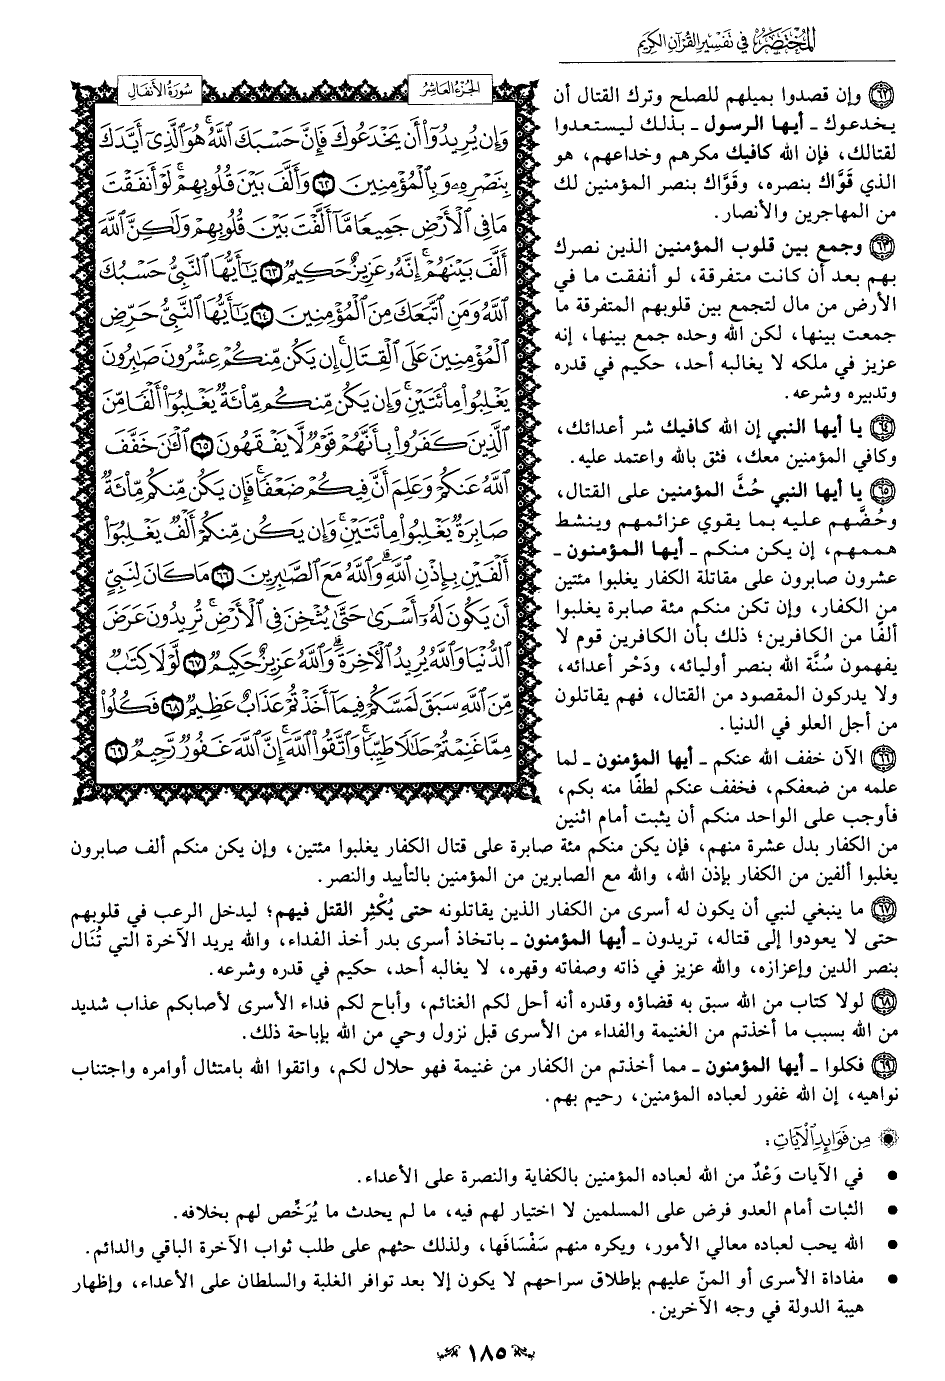 المختصر في تفسير القرآن الكريم
الجزء العاشر
سورة الأنفال
وَإِن يُرِيدُوٓاْ أَن يَخۡدَعُوكَ فَإِنَّ حَسۡبَكَ ٱللَّهُۚ هُوَ ٱلَّذِيٓ أَيَّدَكَ
بِنَصۡرِهِۦ وَبِٱلۡمُؤۡمِنِينَ ٦٢ وَأَلَّفَ بَيۡنَ قُلُوبِهِمۡۚ لَوۡ أَنفَقۡتَ
مَا فِي ٱلۡأَرۡضِ جَمِيعٗا مَّآ أَلَّفۡتَ بَيۡنَ قُلُوبِهِمۡ وَلَٰكِنَّ ٱللَّهَ
أَلَّفَ بَيۡنَهُمۡۚ إِنَّهُۥ عَزِيزٌ حَكِيمٞ ٦٣ يَٰٓأَيُّهَا ٱلنَّبِيُّ حَسۡبُكَ
ٱللَّهُ وَمَنِ ٱتَّبَعَكَ مِنَ ٱلۡمُؤۡمِنِينَ ٦٤ يَٰٓأَيُّهَا ٱلنَّبِيُّ حَرِّضِ
ٱلۡمُؤۡمِنِينَ عَلَى ٱلۡقِتَالِۚ إِن يَكُن مِّنكُمۡ عِشۡرُونَ صَٰبِرُونَ
يَغۡلِبُواْ مِاْئَتَيۡنِۚ وَإِن يَكُن مِّنكُم مِّاْئَةٞ يَغۡلِبُوٓاْ أَلۡفٗا مِّنَ
ٱلَّذِينَ كَفَرُواْ بِأَنَّهُمۡ قَوۡمٞ لَّا يَفۡقَهُونَ ٦٥ ٱلۡـَٰٔنَ خَفَّفَ
ٱللَّهُ عَنكُمۡ وَعَلِمَ أَنَّ فِيكُمۡ ضَعۡفٗاۚ فَإِن يَكُن مِّنكُم مِّاْئَةٞ
صَابِرَةٞ يَغۡلِبُواْ مِاْئَتَيۡنِۚ وَإِن يَكُن مِّنكُمۡ أَلۡفٞ يَغۡلِبُوٓاْ
أَلۡفَيۡنِ بِإِذۡنِ ٱللَّهِۗ وَٱللَّهُ مَعَ ٱلصَّٰبِرِينَ ٦٦ مَا كَانَ لِنَبِيٍّ
أَن يَكُونَ لَهُۥٓ أَسۡرَىٰ حَتَّىٰ يُثۡخِنَ فِي ٱلۡأَرۡضِۚ تُرِيدُونَ عَرَضَ
ٱلدُّنۡيَا وَٱللَّهُ يُرِيدُ ٱلۡأٓخِرَةَۗ وَٱللَّهُ عَزِيزٌ حَكِيمٞ ٦٧ لَّوۡلَا كِتَٰبٞ
مِّنَ ٱللَّهِ سَبَقَ لَمَسَّكُمۡ فِيمَآ أَخَذۡتُمۡ عَذَابٌ عَظِيمٞ ٦٨ فَكُلُواْ
مِمَّا غَنِمۡتُمۡ حَلَٰلٗا طَيِّبٗاۚ وَٱتَّقُواْ ٱللَّهَۚ إِنَّ ٱللَّهَ غَفُورٞ رَّحِيمٞ ٦٩
٦٢ وإن قصدوا بميلهم للصلح وترك القتال أن
يخدعوك ـ أيها الرسول ـ بذلك ليستعدوا
لقتالك، فإن الله كافيك مكرهم وخداعهم، هو
الذي قَوَّاك بنصره، وقَوَّاك بنصر المؤمنين لك
من المهاجرين والأنصار.
٦٣ وجمع بين قلوب المؤمنين الذين نصرك
بهم بعد أن كانت متفرقة، لو أنفقت ما في
الأرض من مال لتجمع بين قلوبهم المتفرقة ما
جمعت بينها، لكن الله وحده جمع بينها، إنه
عزيز في ملكه لا يغالبه أحد، حكيم في قدره
وتدبيره وشرعه.
٦٤ يا أيها النبي إن الله كافيك شر أعدائك،
وكافي المؤمنين معك، فثق بالله واعتمد عليه.
٦٥ يا أيها النبي حُثَّ المؤمنين على القتال،
وحُضَّهم عليه بما يقوي عزائمهم وينشط
هممهم، إن يكن منكم ـ أيها المؤمنون ـ
عشرون صابرون على مقاتلة الكفار يغلبوا مئتين
من الكفار، وإن تكن منكم مئة صابرة يغلبوا
ألفًا من الكافرين؛ ذلك بأن الكافرين قوم لا
يفهمون سُنَّة الله بنصر أوليائه، ودَحْر أعدائه،
ولا يدركون المقصود من القتال، فهم يقاتلون
من أجل العلو في الدنيا.
٦٦ الآن خفف الله عنكم ـ أيها المؤمنون ـ لما
علمه من ضعفكم، فخفف عنكم لطفًا منه بكم،
فأوجب على الواحد منكم أن يثبت أمام اثنين
من الكفار بدل عشرة منهم، فإن يكن منكم مئة صابرة على قتال الكفار يغلبوا مئتين، وإن يكن منكم ألف صابرون
يغلبوا ألفين من الكفار بإذن الله، والله مع الصابرين من المؤمنين بالتأييد والنصر.
٦٧ ما ينبغي لنبي أن يكون له أسرى من الكفار الذين يقاتلونه حتى يُكْثِر القتل فيهم؛ ليدخل الرعب في قلوبهم
حتى لا يعودوا إلى قتاله، تريدون ـ أيها المؤمنون ـ باتخاذ أسرى بدر أخذ الفداء، والله يريد الآخرة التي تُنَال
بنصر الدين وإعزازه، والله عزيز في ذاته وصفاته وقهره، لا يغالبه أحد، حكيم في قدره وشرعه.
٦٨ لولا كتاب من الله سبق به قضاؤه وقدره أنه أحل لكم الغنائم، وأباح لكم فداء الأسرى لأصابكم عذاب شديد
من الله بسبب ما أخذتم من الغنيمة والفداء من الأسرى قبل نزول وحي من الله بإباحة ذلك.
٦٩ فكلوا ـ أيها المؤمنون ـ مما أخذتم من الكفار من غنيمة فهو حلال لكم، واتقوا الله بامتثال أوامره واجتناب
نواهيه، إن الله غفور لعباده المؤمنين، رحيم بهم.
من فوائد الآيات:
• في الآيات وَعْدٌ من الله لعباده المؤمنين بالكفاية والنصرة على الأعداء.
• الثبات أمام العدو فرض على المسلمين لا اختيار لهم فيه، ما لم يحدث ما يُرَخِّص لهم بخلافه.
• الله يحب لعباده معالي الأمور، ويكره منهم سَفْسَافَها، ولذلك حثهم على طلب ثواب الآخرة الباقي والدائم.
• مفاداة الأسرى أو المنّ عليهم بإطلاق سراحهم لا يكون إلا بعد توافر الغلبة والسلطان على الأعداء، وإظهار
هيبة الدولة في وجه الآخرين.
١٨٥